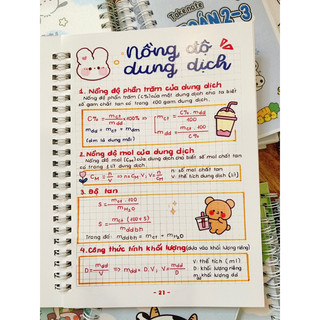 Take note
TOÁN 2-3
Nồng độ
dung dịch
1. Nồng độ phần trăm của dung dịch
Nồng độ phần trăm (C%) của một dung dịch cho ta biết
số gam chất tan có trong 100 gam dung dịch.
C% = mct/mdd × 100% ⇒ mct = C%. mdd/100
mdd = mct + mdm
(dm là dung môi)
mdd = mct. 100/C%
2. Nồng độ mol của dung dịch
Nồng độ mol (CM) của dung dịch cho biết số mol chất tan
có trong 1 lít dung dịch.
CM = n/V ⇒ n = CM. V; V = n/CM
n: số mol chất tan
V: thể tích dung dịch (lít)
3. Độ tan
S = mct . 100/mH2O
S = mct . (100 + S)/mddbh
Trong đó: mddbh = mct + mH2O
4. Công thức tính khối lượng (dựa vào khối lượng riêng)
D = mdd/V ⇒ mdd = D. V; V = mdd/D
V: thể tích (ml)
D: khối lượng riêng
mdd: khối lượng dd
- 21 -